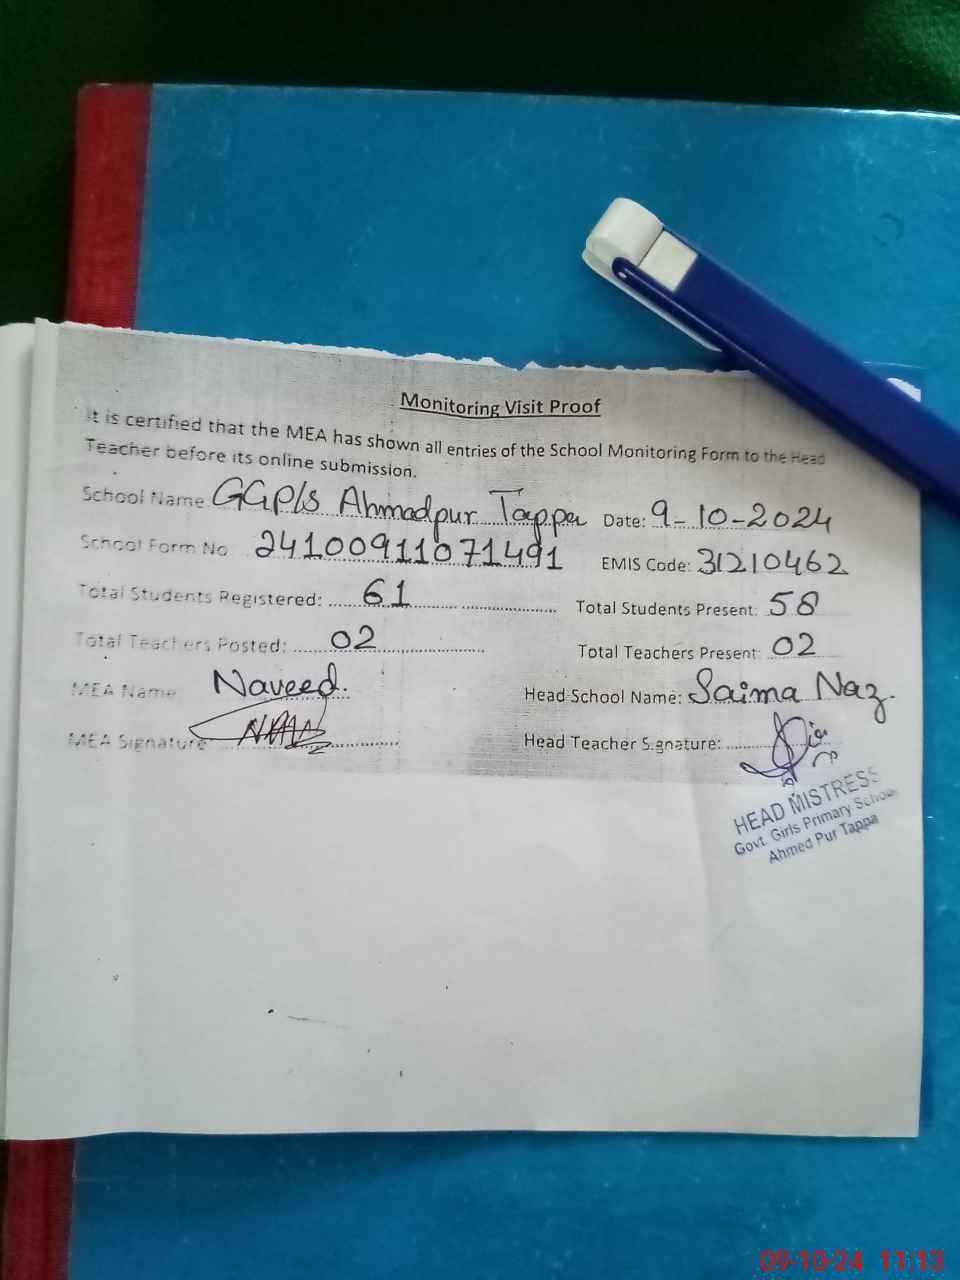 Monitoring Visit Proof
It is certified that the MEA has shown all entries of the School Monitoring Form to the Head
Teacher before its online submission.
School Name GGPS Ahmadpur Tappa Date: 9-10-2024
School Form No 24100911071491 EMIS Code: 31210462
Total Students Registered: 61 Total Students Present: 58
Total Teachers Posted: 02 Total Teachers Present: 02
MEA Name Naveed. Head School Name: Saima Naz.
MEA Signature Head Teacher S.gnature:
HEAD MISTRESS
Govt. Girls Primary School
Ahmed Pur Tappa
09-10-24 11:13